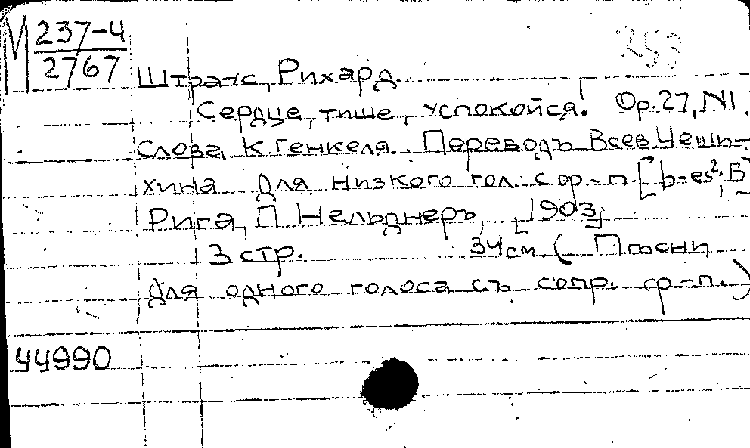 М 237-4
2767
253
Штраус, Рихард.
Сердце, тише, успокойся. Op. 27, N1.
Слова К. Генкеля. Переводъ Всев. Чеши-
хина. Для низкого гол. с фр-п [b-es², B]
Рига, П. Нельднеръ, [1903]
3 стр. 34 см. (Пѣсни
для одного голоса съ сопр. фр-п.)
44990